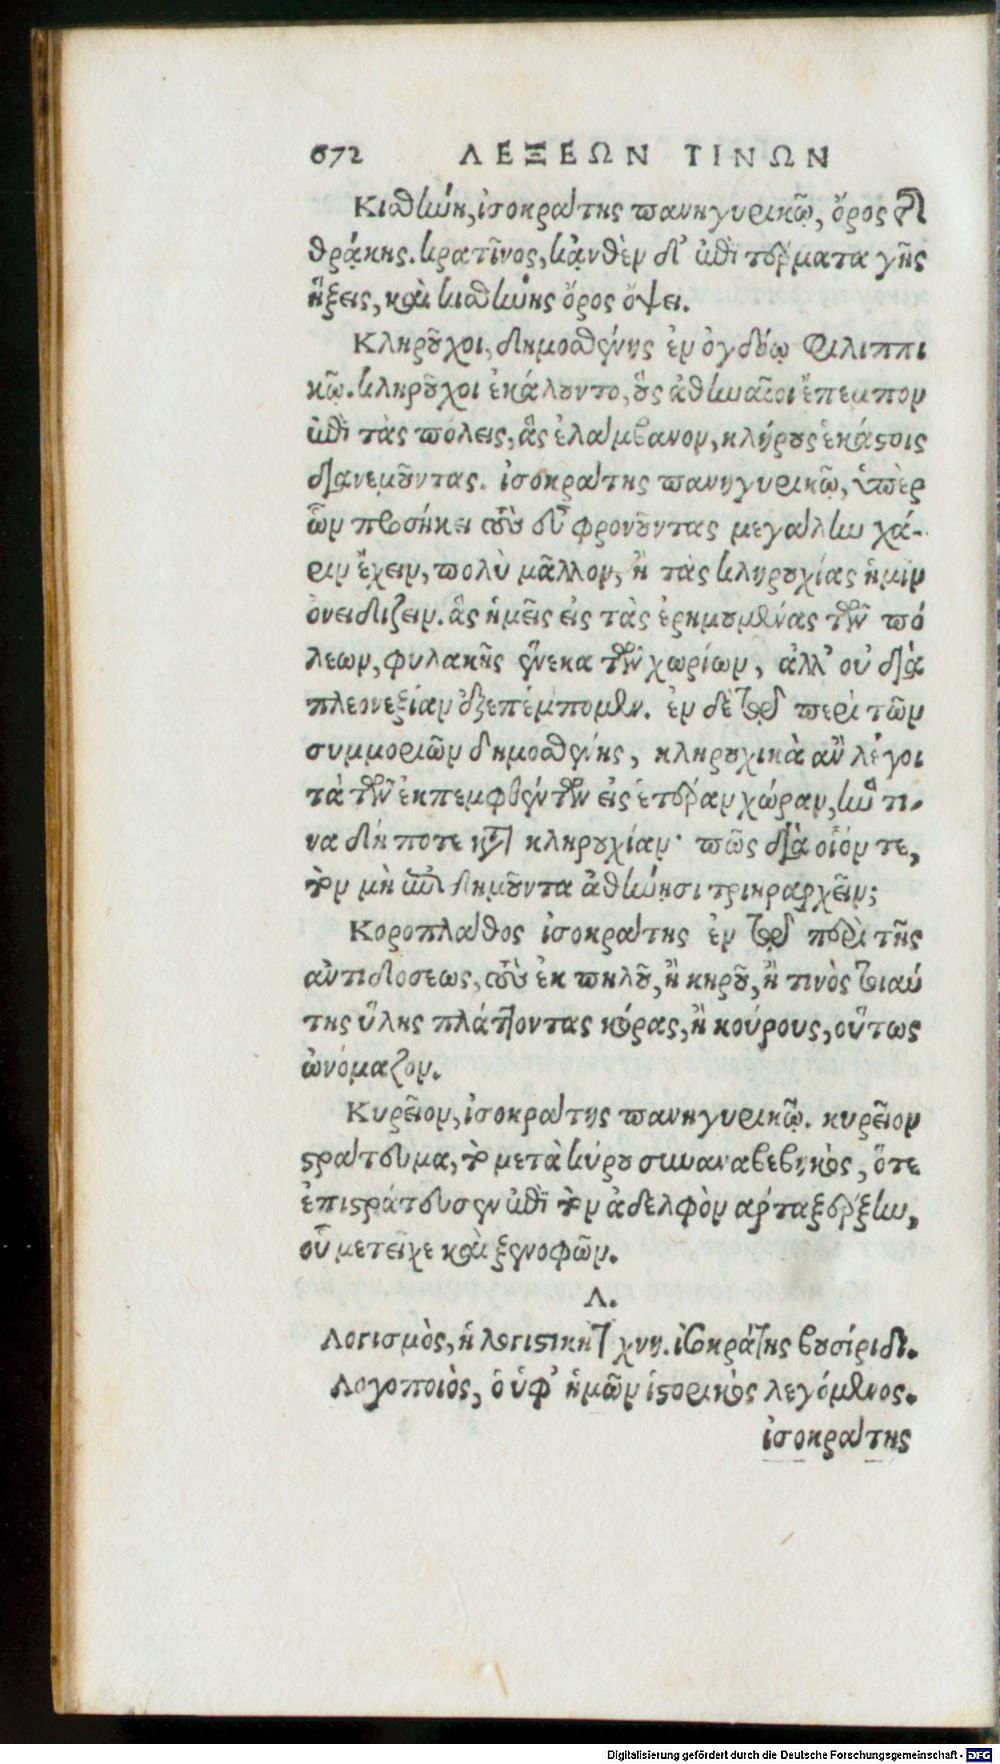 672 ΛΕΞΕΩΝ ΤΙΝΩΝ
Κισθώη, ἰσοκράτης πανηγυρικῷ, ὄρος
θρᾴκης. κρατῖνος, κᾀνθὲν δ' ἐπὶ τέρματα γῆς
ἥξεις, καὶ κισθώης ὄρος ὄψει.
Κληροῦχοι, δημοσθένης ἐν ὀγδόῳ Φιλιππι
κῷ. κληροῦχοι ἐκάλουντο, οὓς ἀθηναῖοι ἔπεμπον
ἐπὶ τὰς πόλεις, ἃς ἐλάμβανον, κλήρους ἑκάστοις
διανεμοῦντας. ἰσοκράτης πανηγυρικῷ, ὑπὲρ
ὧν προσήκει τοὺς εὖ φρονοῦντας μεγάλην χά-
ριν ἔχειν, πολὺ μᾶλλον, ἢ τὰς κληρουχίας ἡμῖν
ὀνειδίζειν. ἃς ἡμεῖς εἰς τὰς ἐρημουμένας τῶν πό
λεων, φυλακῆς ἕνεκα τῶν χωρίων, ἀλλ' οὐ διὰ
πλεονεξίαν ἐξεπέμπομεν. ἐν δὲ τῷ περὶ τῶν
συμμοριῶν δημοσθένης, κληρουχικὰ ἂν λέγοι
τὰ τῶν ἐκπεμφθέντων εἰς ἑτέραν χώραν, ἥν τι-
να δή ποτε κατὰ κληρουχίαν· πῶς διὰ οἷόν τε,
τὸν μὴ ἐπιδημοῦντα ἀθήνησι τριηραρχεῖν;
Κοροπλάθος ἰσοκράτης ἐν τῷ περὶ τῆς
ἀντιδόσεως, τοὺς ἐκ πηλοῦ, ἢ κηροῦ, ἤ τινὸς τοιαύ
της ὕλης πλάττοντας κόρας, ἢ κούρους, οὕτως
ὠνόμαζον.
Κυρεῖον, ἰσοκράτης πανηγυρικῷ. κυρεῖον
στράτευμα, τὸ μετὰ κύρου συναναβεβηκὸς, ὅτε
ἐπιστράτευσεν ἐπὶ τὸν ἀδελφὸν ἀρταξέρξην,
οὗ μετεῖχε καὶ ξενοφῶν.
Λ.
Λογισμὸς, ἡ λογιστικὴ τέχνη. ἰσοκράτης βουσίριδι.
Λογοποιὸς, ὁ ὑφ' ἡμῶν ἱστορικὸς λεγόμενος.
ἰσοκράτης
Digitalisierung gefördert durch die Deutsche Forschungsgemeinschaft - DFG